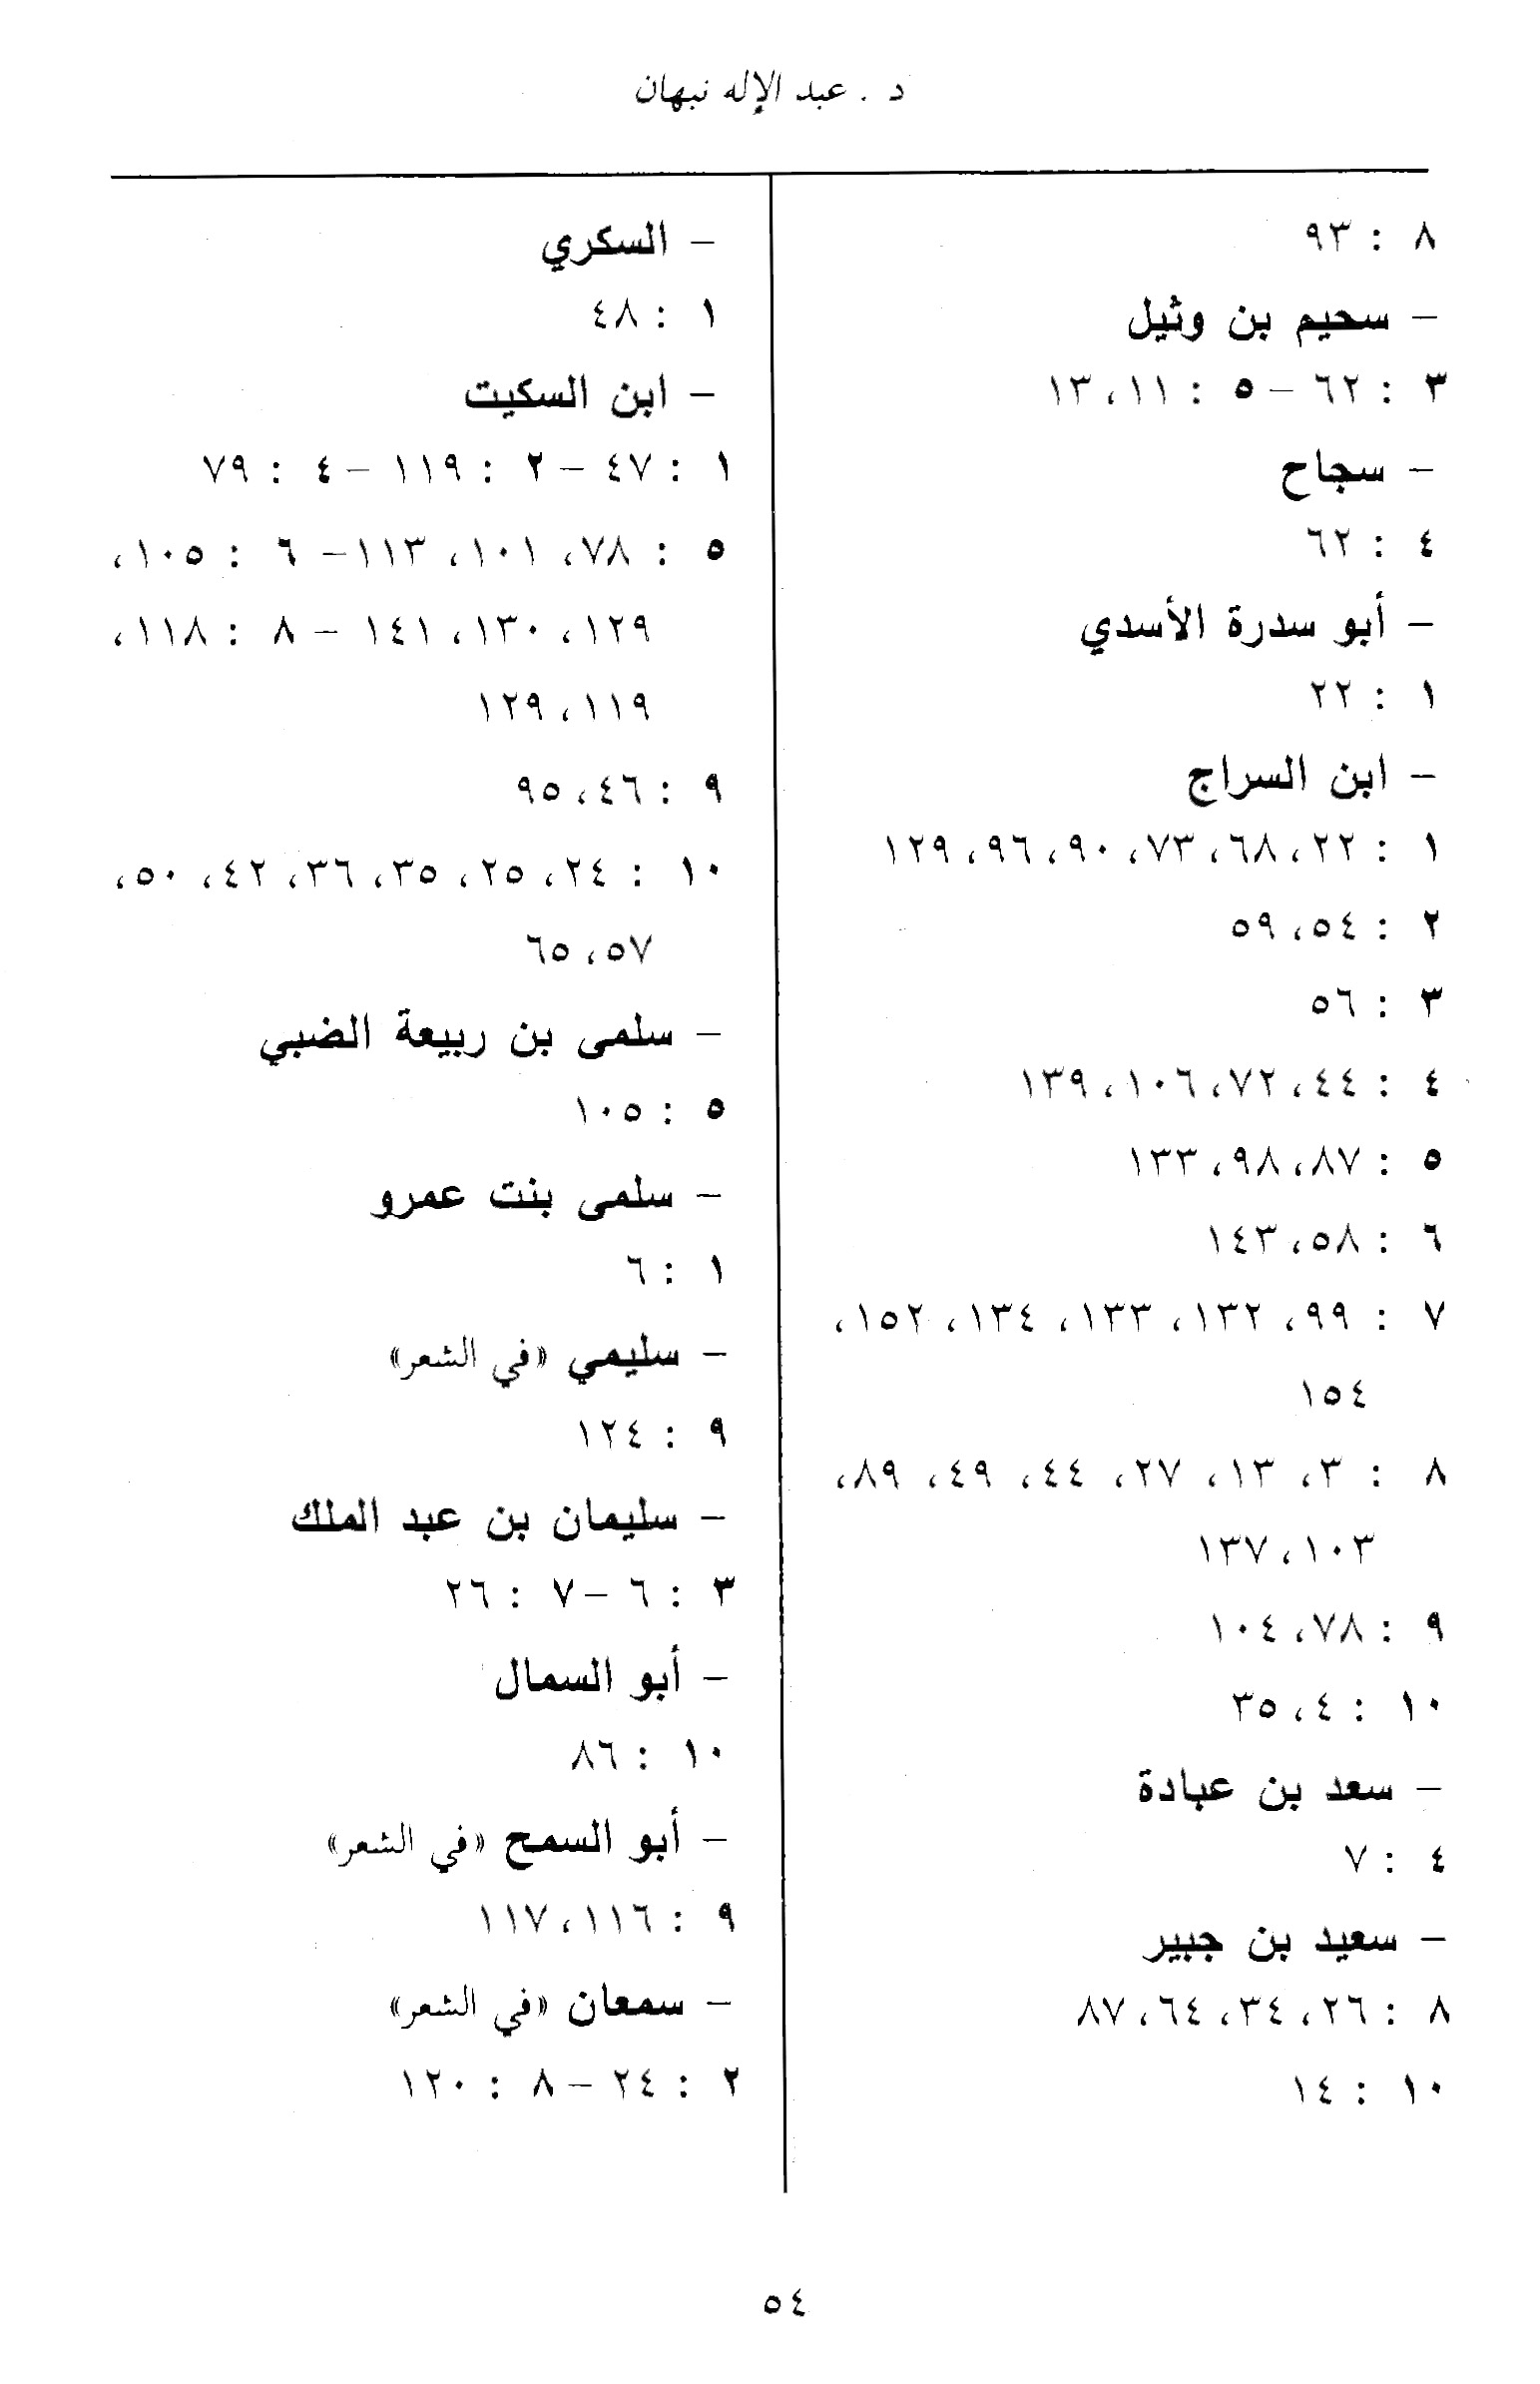 د . عبد الإله نبهان
٨ : ٩٣
– سحيم بن وثيل
٣ : ٦٢ – ٥ : ١١، ١٣
– سجاح
٤ : ٦٢
– أبو سدرة الأسدي
١ : ٢٢
– ابن السراج
١ : ٢٢، ٦٨، ٧٣، ٩٠، ٩٦، ١٢٩
٢ : ٥٤، ٥٩
٣ : ٥٦
٤ : ٤٤، ٧٢، ١٠٦، ١٣٩
٥ : ٨٧، ٩٨، ١٣٣
٦ : ٥٨، ١٤٣
٧ : ٩٩، ١٣٢، ١٣٣، ١٣٤، ١٥٢،
١٥٤
٨ : ٣، ١٣، ٢٧، ٤٤، ٤٩، ٨٩،
١٠٣، ١٣٧
٩ : ٧٨، ١٠٤
١٠ : ٤، ٣٥
– سعد بن عبادة
٤ : ٧
– سعيد بن جبير
٨ : ٢٦، ٣٤، ٦٤، ٨٧
١٠ : ١٤
– السكري
١ : ٤٨
– ابن السكيت
١ : ٤٧ – ٢ : ١١٩ – ٤ : ٧٩
٥ : ٧٨، ١٠١، ١١٣ – ٦ : ١٠٥،
١٢٩، ١٣٠، ١٤١ – ٨ : ١١٨،
١١٩، ١٢٩
٩ : ٤٦، ٩٥
١٠ : ٢٤، ٢٥، ٣٥، ٣٦، ٤٢، ٥٠،
٥٧، ٦٥
– سلمى بن ربيعة الضبي
٥ : ١٠٥
– سلمى بنت عمرو
١ : ٦
– سليمي «في الشعر»
٩ : ١٢٤
– سليمان بن عبد الملك
٣ : ٦ – ٧ : ٢٦
– أبو السمال
١٠ : ٨٦
– أبو السمح «في الشعر»
٩ : ١١٦، ١١٧
– سمعان «في الشعر»
٢ : ٢٤ – ٨ : ١٢٠
٥٤